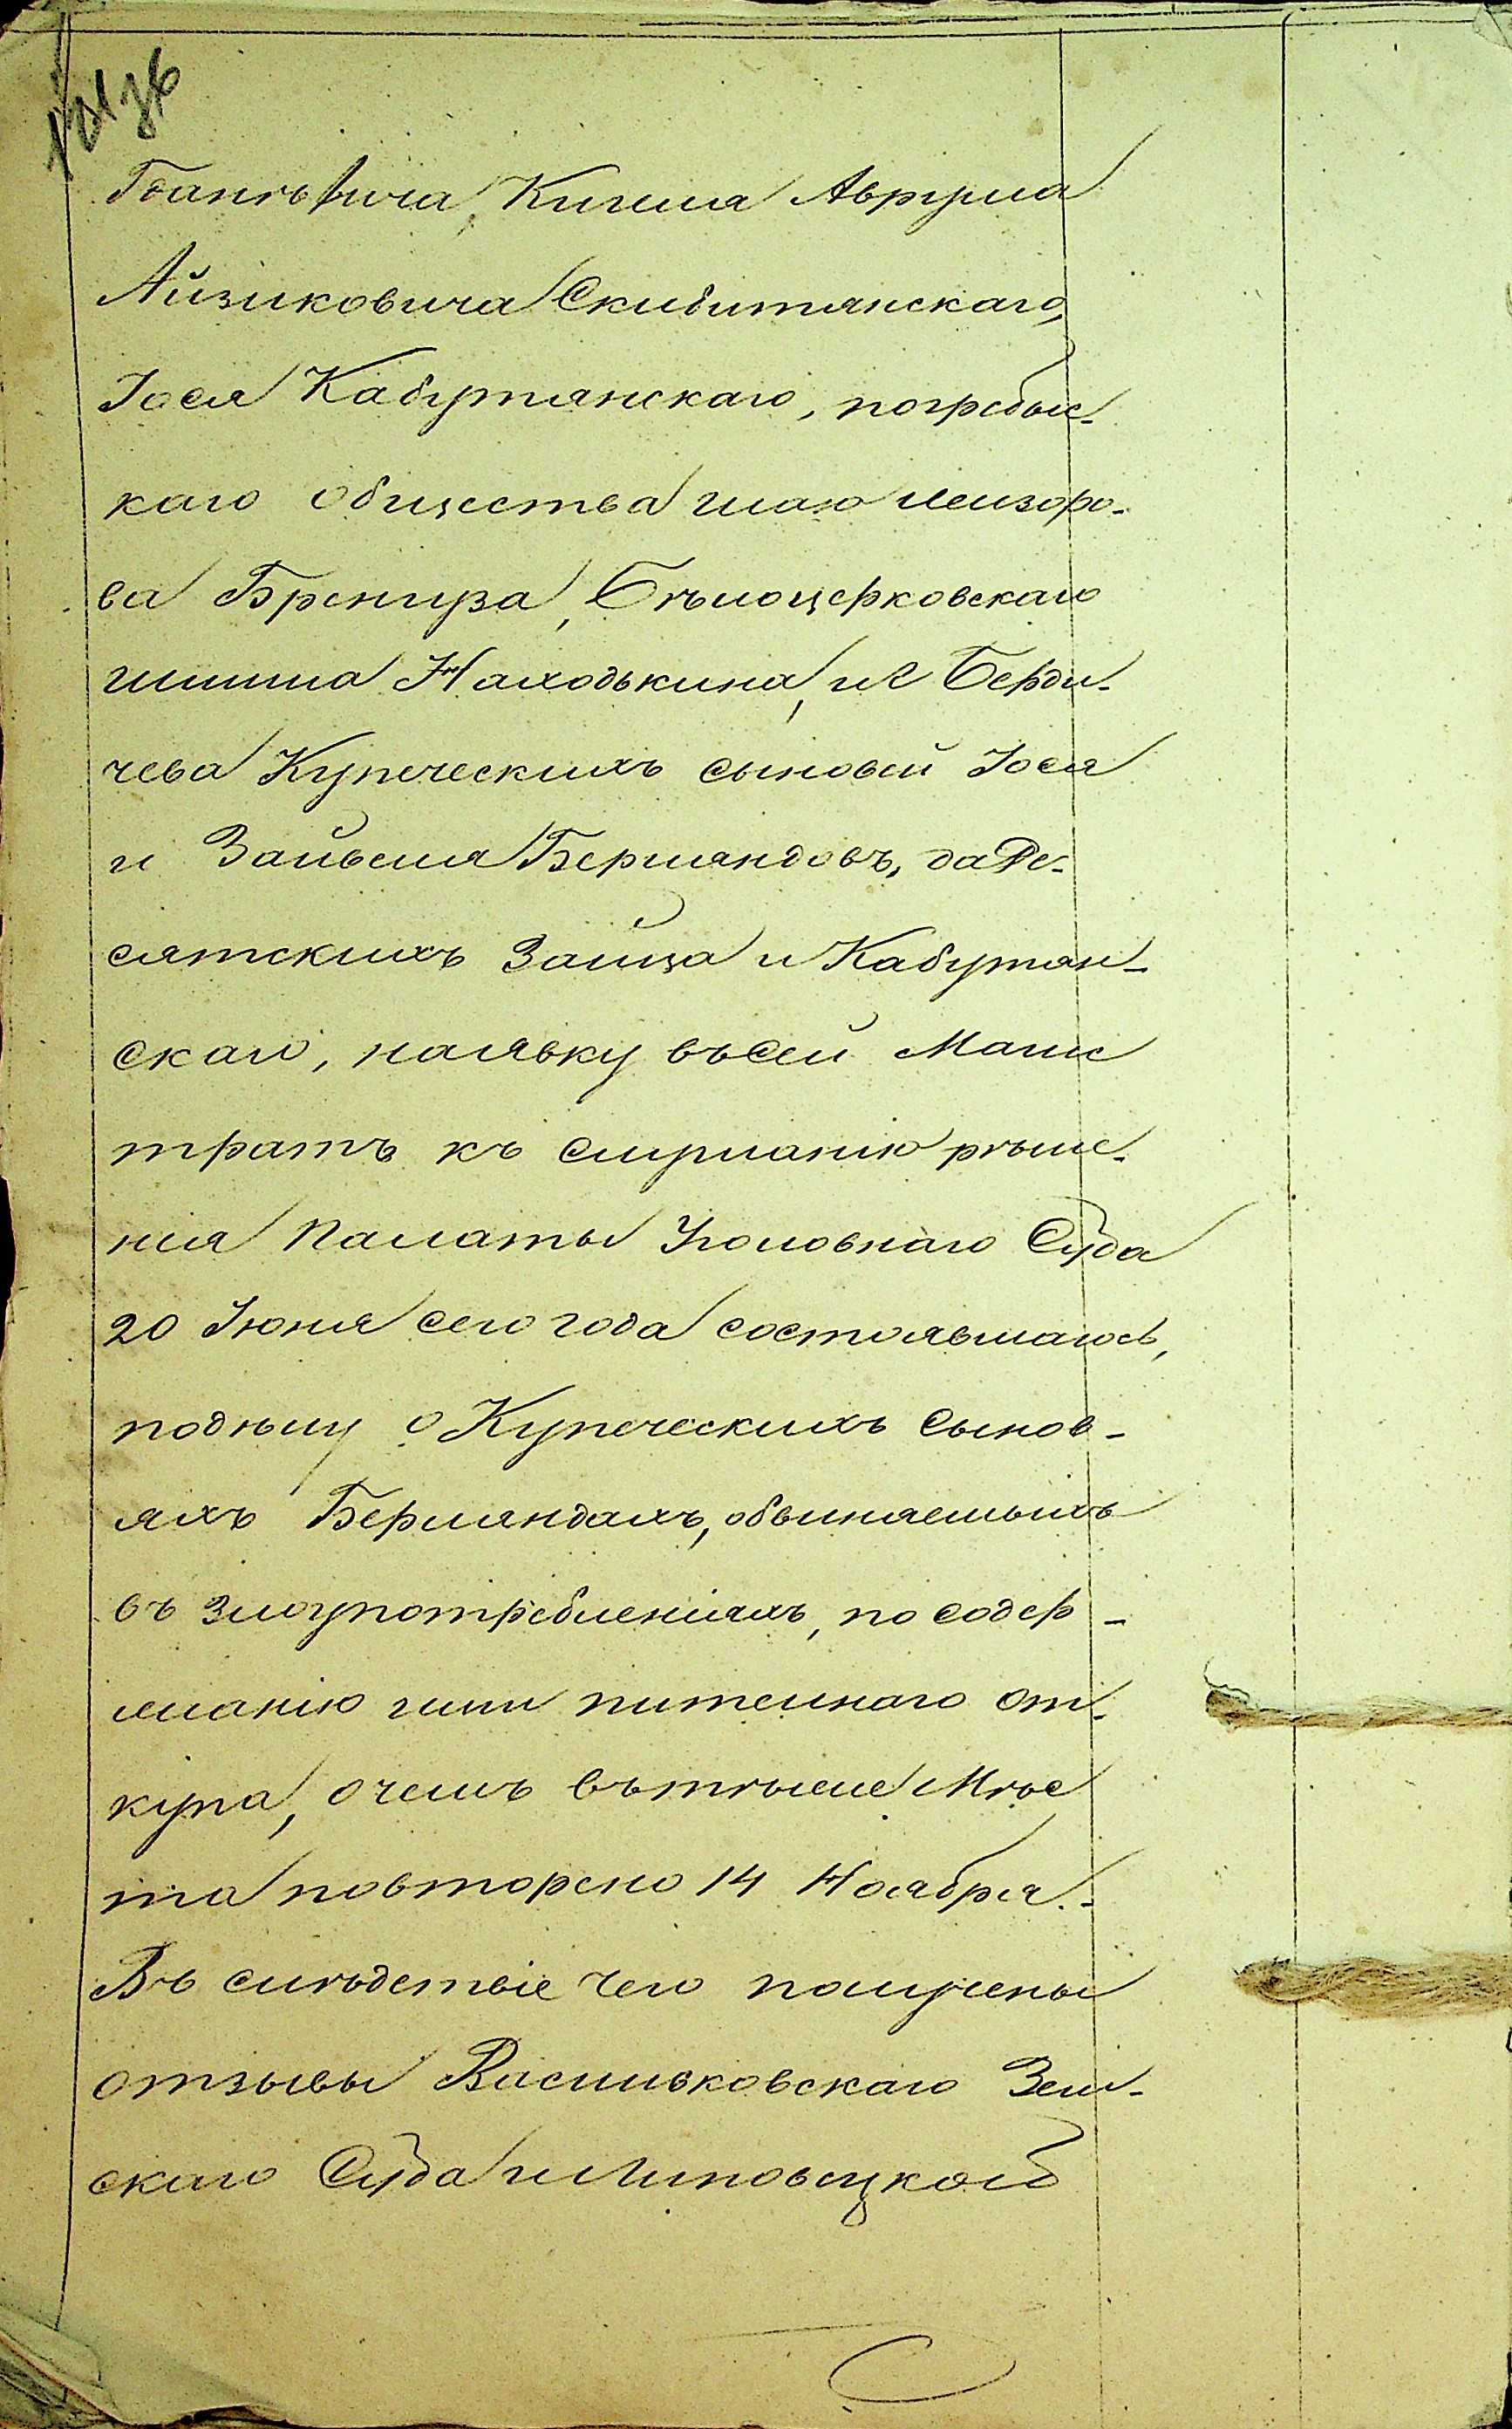 Айзиковича Скибитянскаго,
Іося Кабутянскаго, погребыс-
каго общества Шаю Лейзоро-
ва Бренгуза, Бѣлоцерковскаго
Шлиома Находькина, и г Берди-
чева Купеческихъ сыновей Іося
и Зайвеля Берляндовъ, да Де-
сятскихъ Зайца и Кабутян-
скаго, на явку въ сей Магис
тратъ къ слушанію рѣше-
нія Палаты Уголовнаго Суда
20 Іюня сего года состоявшагось,
по дѣлу о Купеческихъ Сынов-
яхъ Берляндахъ, обвиняемыхъ
въ злоупотребленіяхъ, по содер-
жанію ими питейнаго от-
купа, о чемъ въ тѣже Мѣс
та повторено 14 Ноября.-
Въ слѣдствіе чего получены
отзывы Васильковскаго Зем-
скаго Суда и Липовецкой